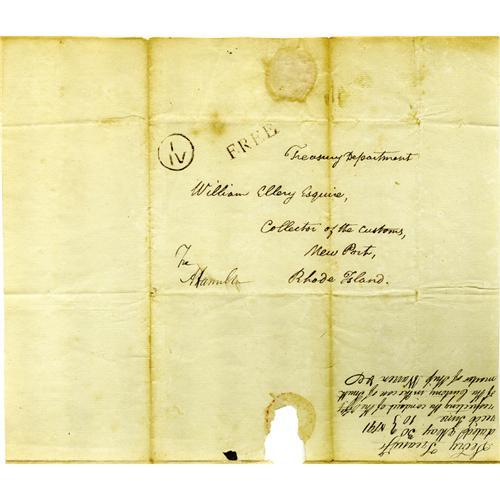 FREE
Treasury Department
William Ellery Esquire,
Collector of the Customs,
New Port,
Rhode Island.
Free
AHamilton
Secry Treasy
dated May 30
recd June 10 1791
respecting the conduct of the Offs
of the Customs in the case of Smith
master of Ship Warren &c